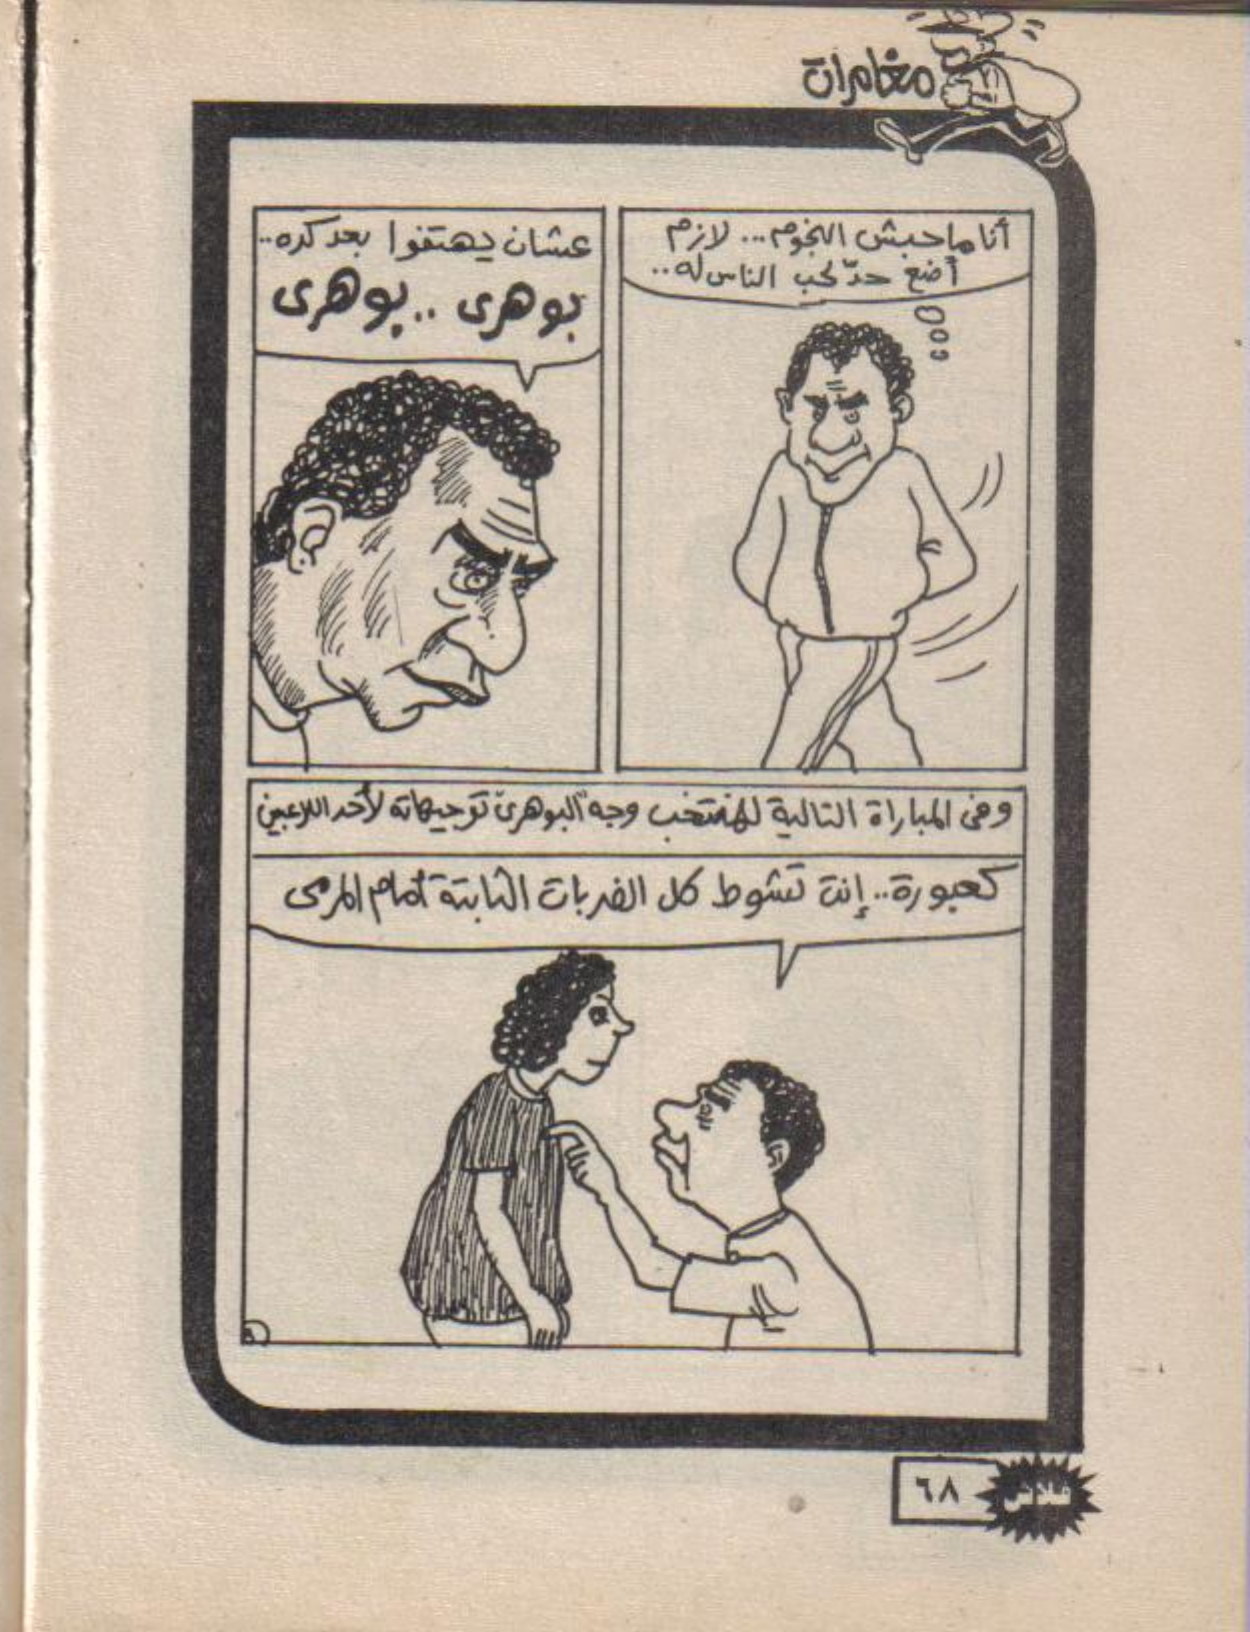 مغامرات
أنا ماحبش النجوم... لازم
أضع حدّ لحب الناس له..
عشان يهتفوا بعد كده..
بوهرى.. بوهرى
وفى المباراة التالية للمنتخب وجه "البوهرى" توجيهاته لأحد اللاعبين
كعبورة.. إنت تشوط كل الضربات الثابتة أمام المرمى
٦٨
فلاش